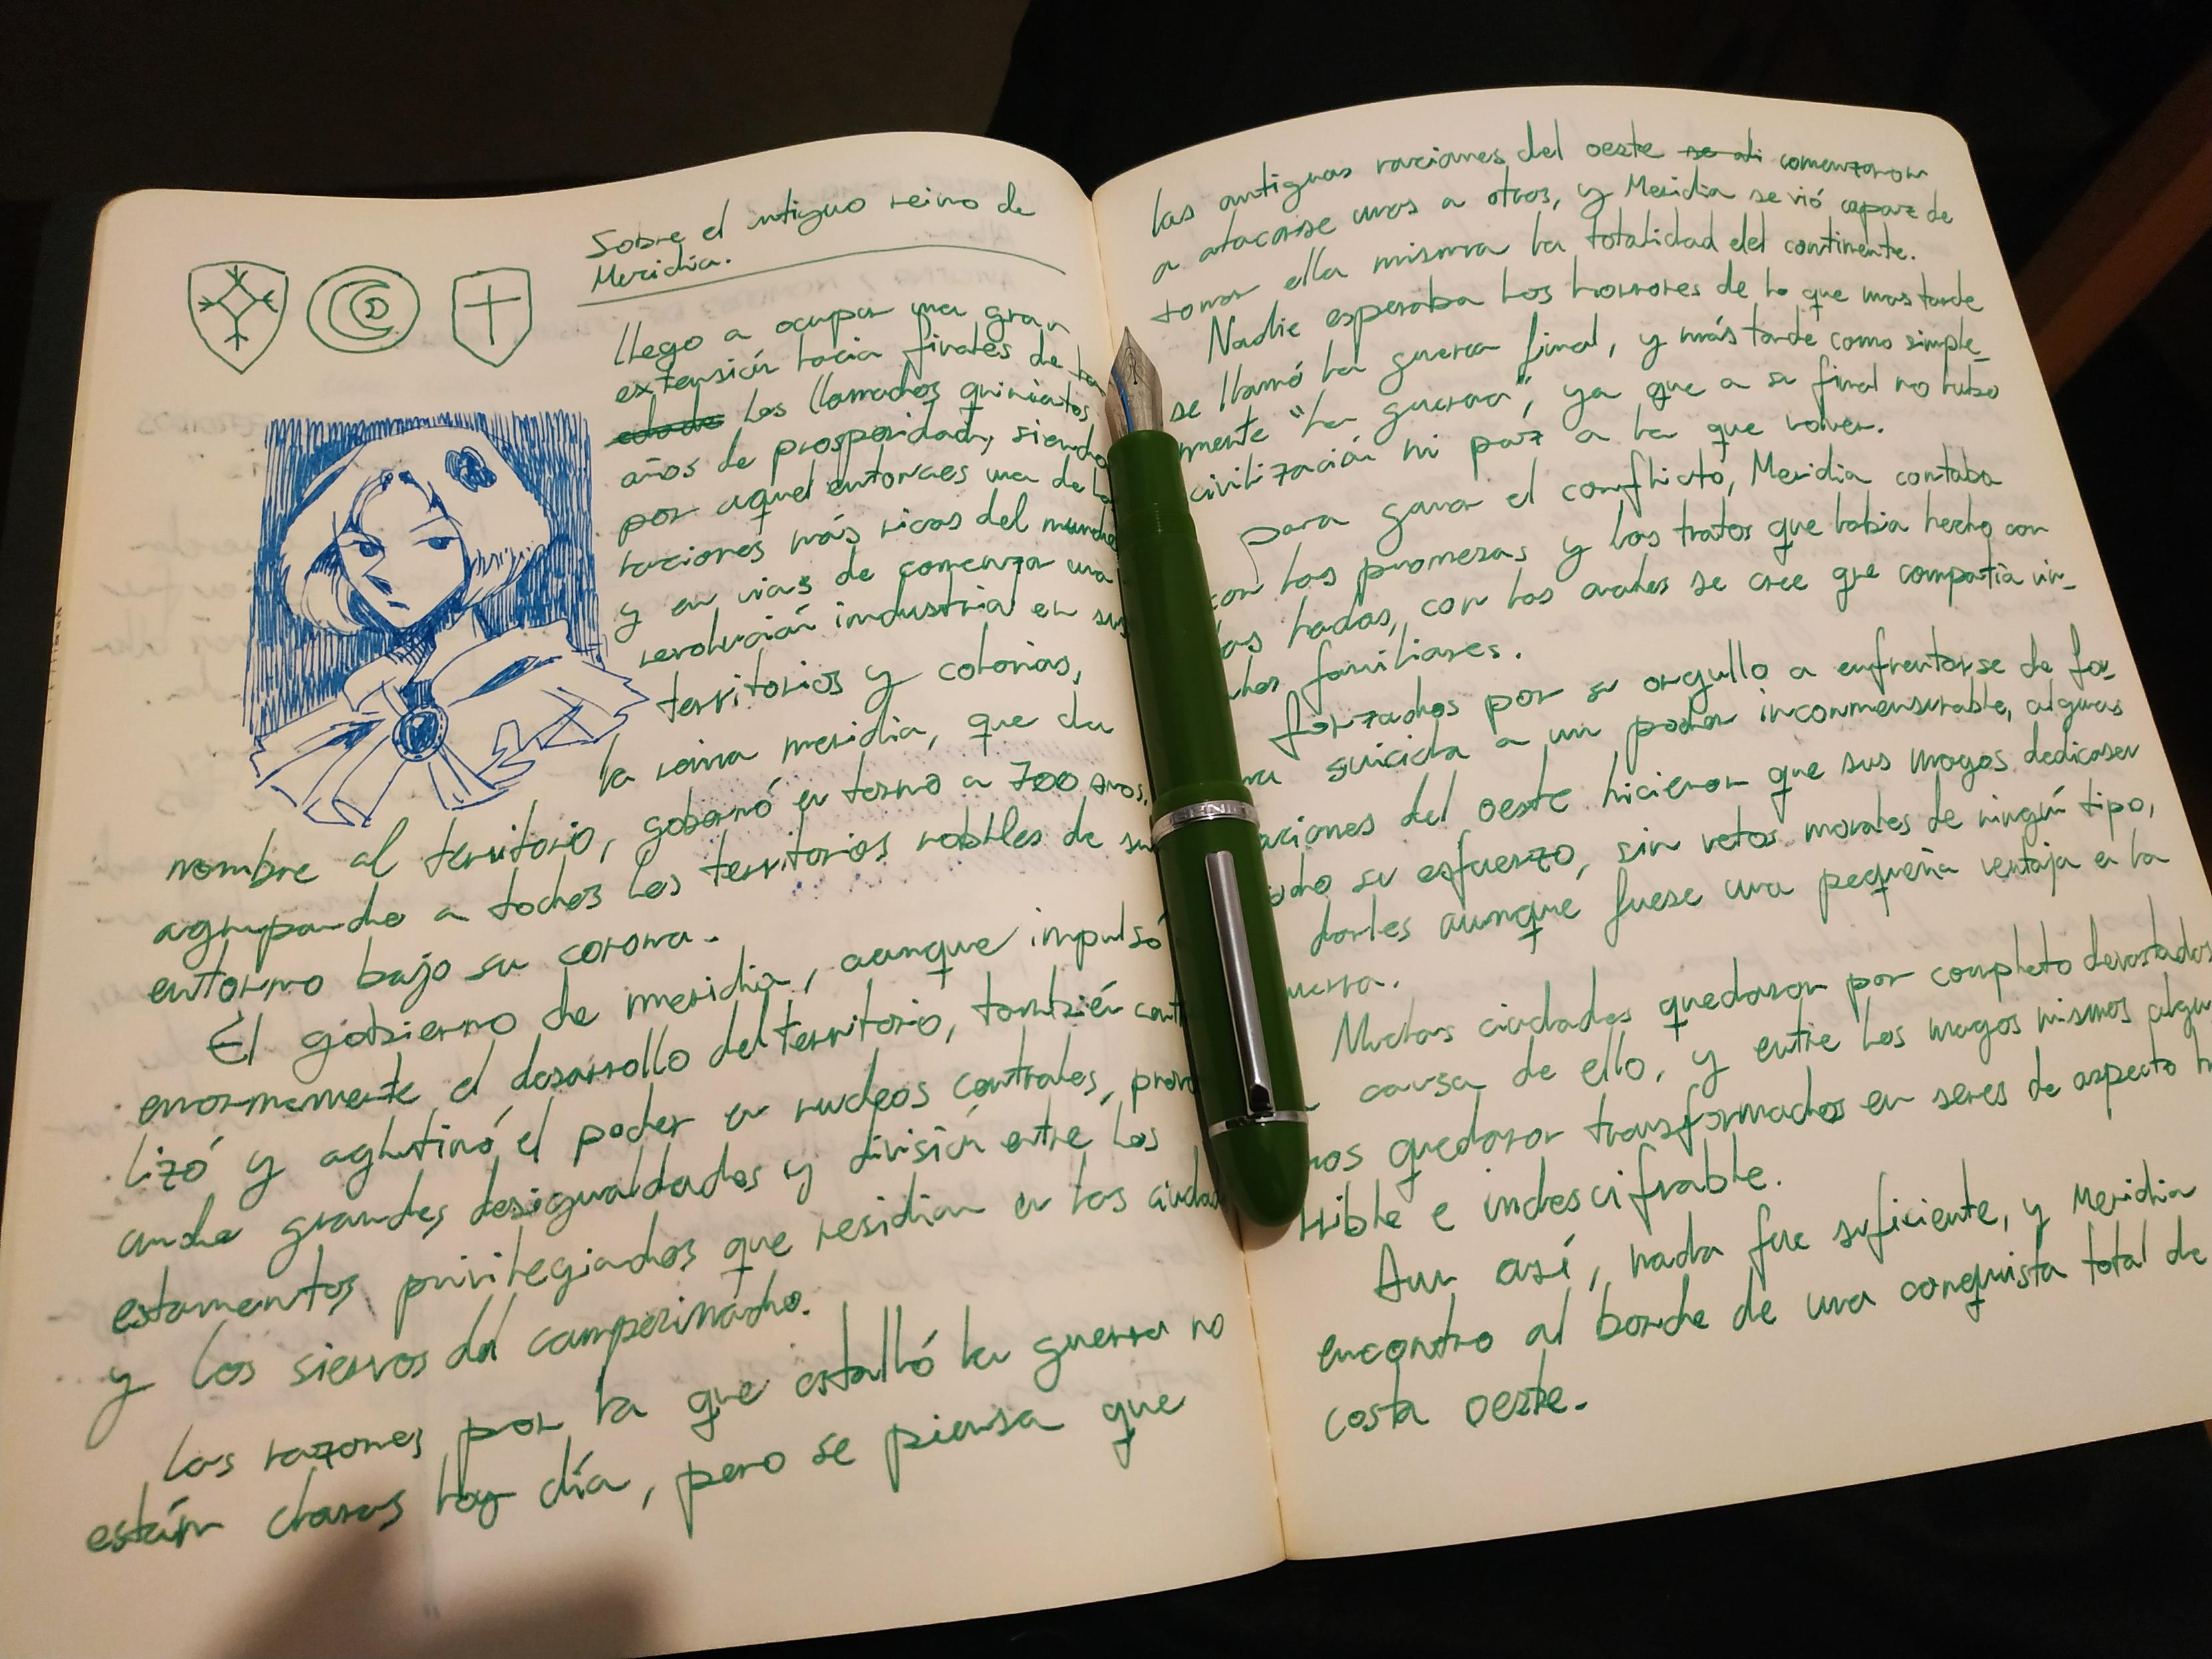 Sobre el antiguo reino de
Meridia.
llego a ocupar una gran
extensión hacia finales de la
los llamados quinientos
años de prosperidad, siendo
por aquel entonces una de las
naciones más ricas del mundo
y en vias de comenzar una
revolución industria en sus
territorios y colonias,
la reina meridia, que da
nombre al territorio, gobernó en torno a 700 anos,
agrupando a todos los territorios nobles de su
entorno bajo su corona.
El gobierno de meridia, aunque impulsó
enormemente el desarrollo del territorio, también cent
lizó y aglutinó el poder en nucleos centrales, provo
ando grandes desigualdades y división entre los
estamentos privilegiados que residian en las ciudad
y los siervos del campesinado.
Las razones por la que estalló la guerra no
están claras hoy día, pero se piensa que
las antiguas naciones del oeste comenzaron
a atacarse unas a otras, y Meridia se vió capaz de
tomar ella misma la totalidad del continente.
Nadie esperaba los horrores de lo que mas tarde
se llamó la guerra final, y más tarde como simple_
mente "la guerra", ya que a su final no hubo
civilización ni paz a la que volver.
para ganar el conflicto, Meridia contaba
con las promesas y los tratos que habia hecho con
las hadas, con las cuales se cree que compartía vin_
ulos familiares.
forzados por su orgullo a enfrentarse de fo_
ma suicida a un poder inconmensurable, algunas
aciones del oeste hicieron que sus magos dedicasen
odo su esfuerzo, sin vetos morales de ningún tipo,
darles aunque fuese una pequeña ventaja en la
uerra.
Muchas ciudades quedaron por completo devastadas
causa de ello, y entre los magos mismos algu
nos quedaron transformados en seres de aspecto h
rrible e indescifrable.
Aun así, nada fue suficiente, y Meridia
encontro al borde de una conquista total de
costa oeste.